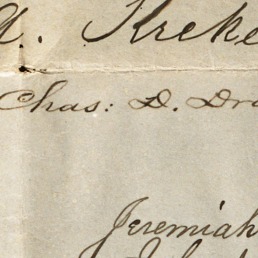 A. Kreke
Chas: D. Dra
Jeremiah